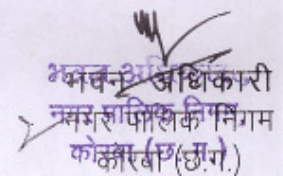 भवन अधिकारी
नगर पालिक निगम
कोरबा (छ.ग.)